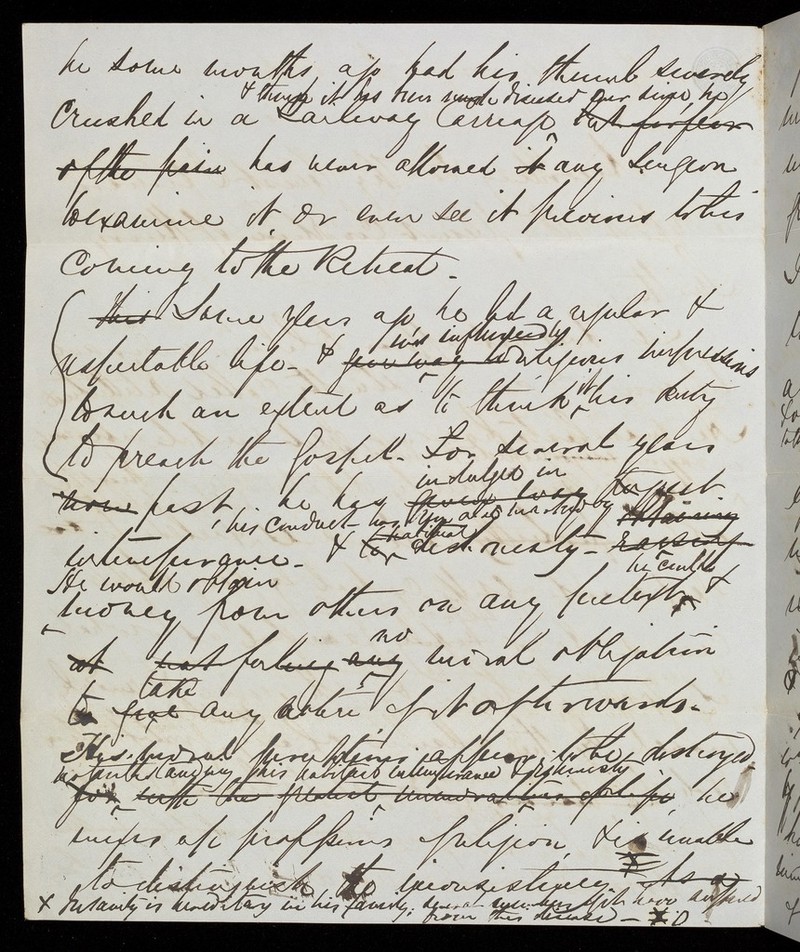 he some months ago had his thumb severely
& though it has been much diseased ever since he
crushed in a Railway Carriage but for fear
of the pain has never allowed it any Surgeon
to examine it or even see it previous to his
coming to the Retreat.
this Some years ago he led a regular &
was influenced by
respectable life. & gave way to religious impressions
to such an extent as to think it his duty
to preach the Gospel. For several years
indulged in
now past, he has given way to great
his conduct has been marked by
intemperance. & dishonesty.
He would obtain he could &
money from others on any pretext
no
at not feeling any moral obligation
take
to give any notice of it afterwards.
His moral perceptions appear to be destroyed
notwithstanding his habitual intemperance & dishonesty
for with the he
makes a profession of religion, & is unable
to distinguish the inconsistency. As a
x Insanity is hereditary in his family, several have suffered
from this disease